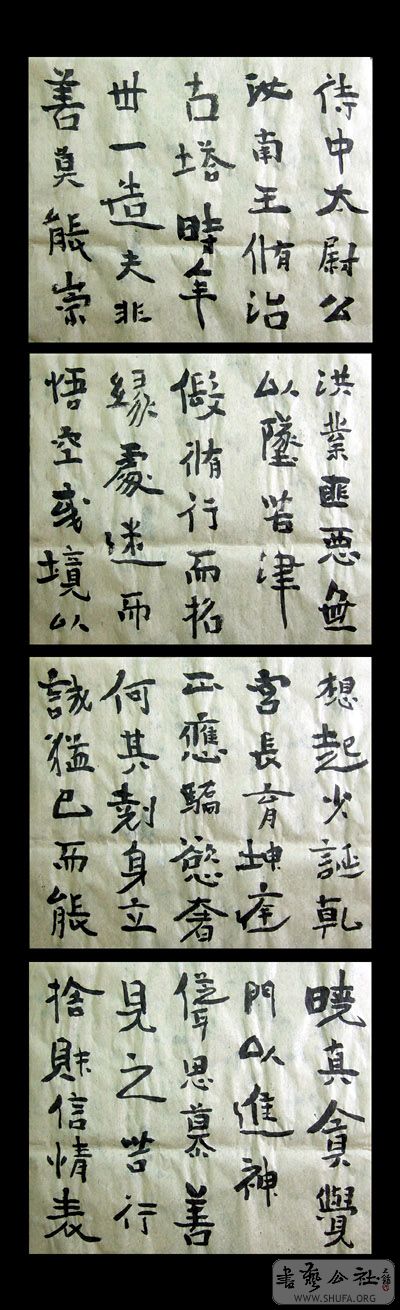 侍中太尉公
汝南王脩治
古塔時年
卅一造夫非
善莫能崇
洪業匪惡無
以墜苦津
假脩行而招
緣處迷而
悟空或境以
想起少誕乹
宮長育坤
正應驕慾奢
何其剋身立
誠猶已而能
曉真貪覺
門以進神
從思慕善
見之苦行
捨財信情表
書藝公社
WWW.SHUFA.ORG